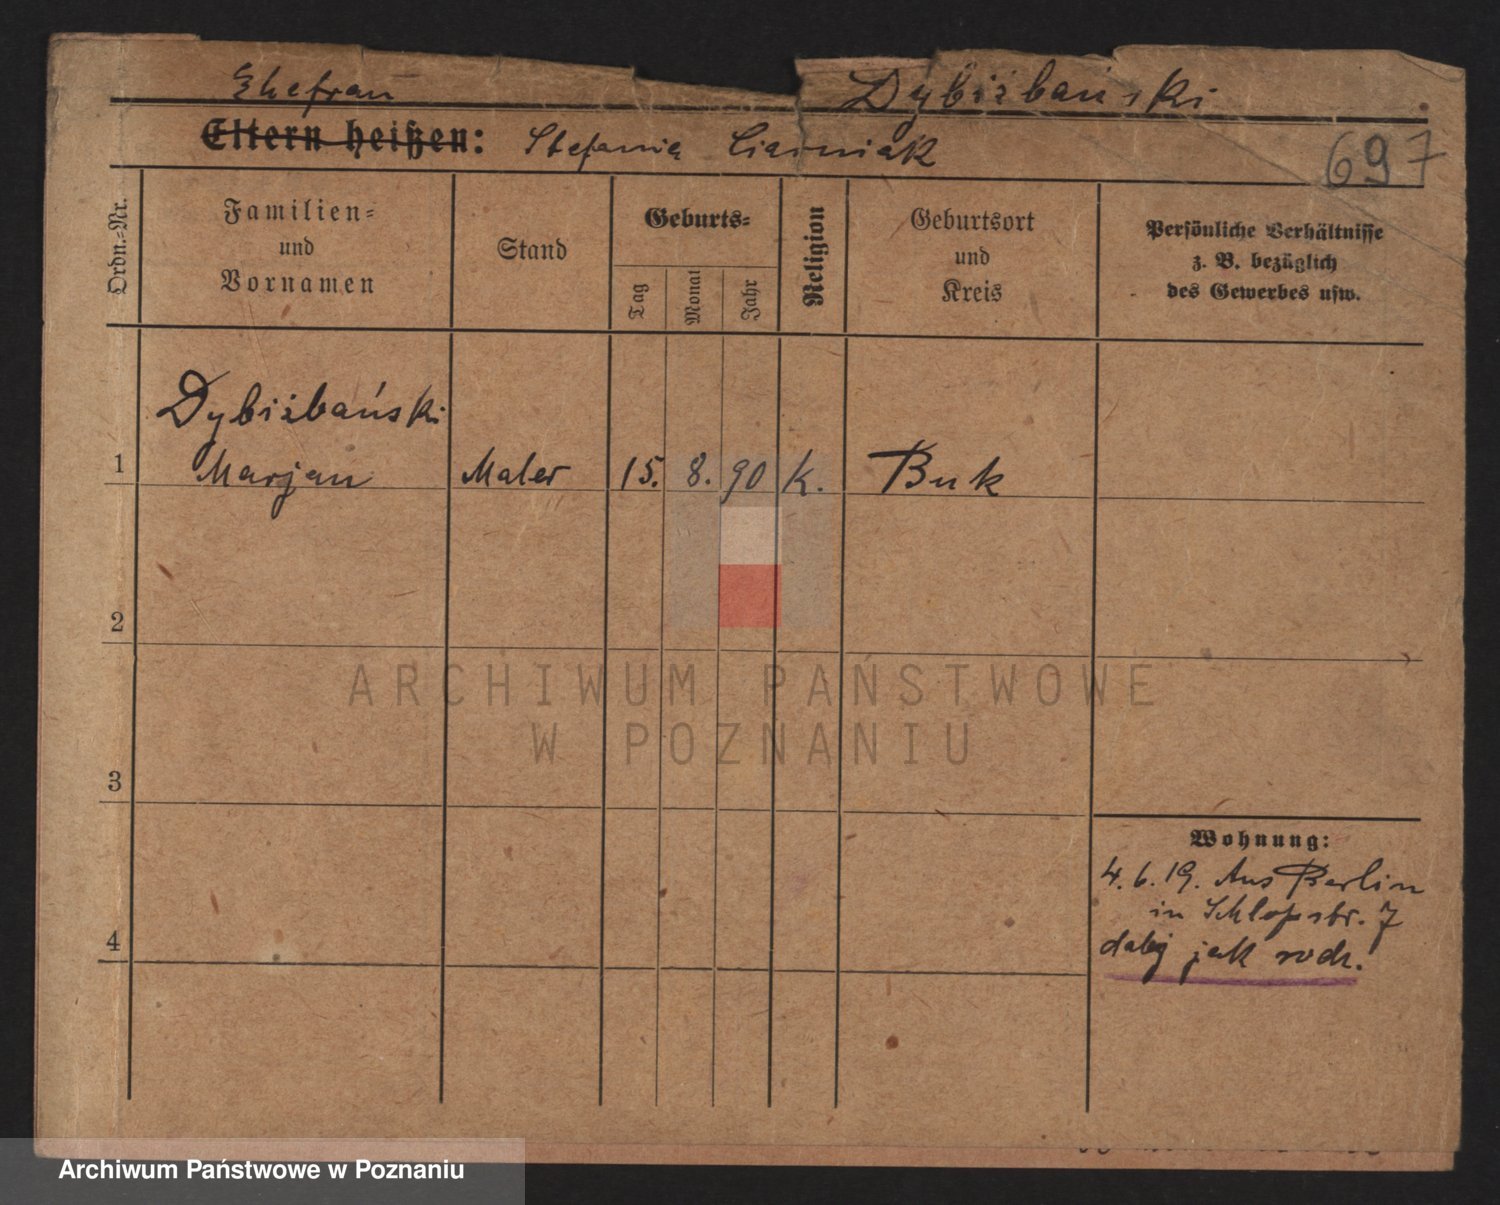 Ehefrau Dybiżbański
Eltern heißen: Stefania Ciaśniak
697
Ordn.=Nr.
Familien=
und
Vornamen
Stand
Geburts=
Tag
Monat
Jahr
Religion
Geburtsort
und
Kreis
Persönliche Verhältnisse
z. B. bezüglich
des Gewerbes usw.
Dybiżbański
1 Marjan Maler 15. 8. 90 K. Buk
2
ARCHIWUM PAŃSTWOWE
W POZNANIU
3
Wohnung:
4. 6. 19. Aus Berlin
in Schloßstr. 7
4
dalej jak rodz.
Archiwum Państwowe w Poznaniu